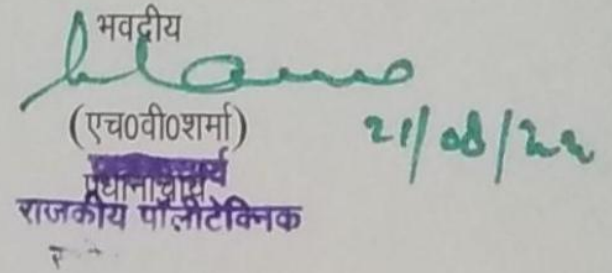 भवदीय
(एच०वी०शर्मा)
21/08/22
प्रधानाचार्य
राजकीय पॉलीटेक्निक